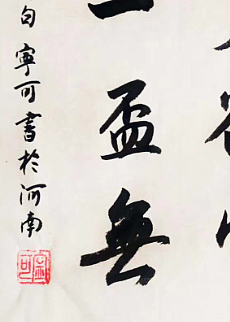 一盃無
句寧可書於河南